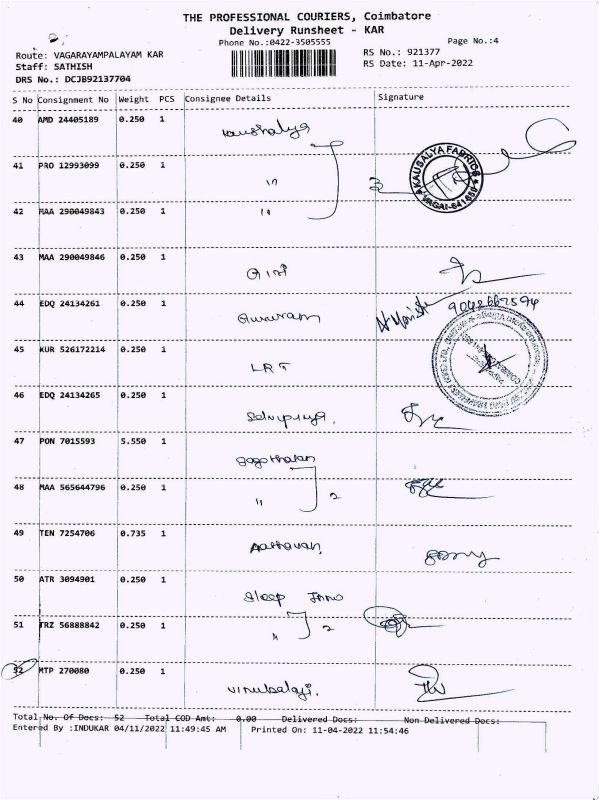 THE PROFESSIONAL COURIERS, Coimbatore
Delivery Runsheet - KAR
Phone No.:0422-3505555 Page No.:4
Route: VAGARAYAMPALAYAM KAR RS No.: 921377
Staff: SATHISH RS Date: 11-Apr-2022
DRS No.: DCJB92137704
S No Consignment No Weight PCS Consignee Details Signature
40 AMD 24405189 0.250 1 Kaushalya
KAUSALYA FABRICS
VAGAI-641659
41 PRO 12993099 0.250 1 "
42 MAA 290049843 0.250 1 "
43 MAA 290049846 0.250 1
44 EDQ 24134261 0.250 1
45 KUR 526172214 0.250 1 LRT
46 EDQ 24134265 0.250 1 Selvipriya.
47 PON 7015593 5.550 1
48 MAA 565644796 0.250 1 " 2
49 TEN 7254706 0.735 1
50 ATR 3094901 0.250 1 Sleep
51 TRZ 56888842 0.250 1 " 2
52 MTP 270080 0.250 1
Total No. Of Docs: 52 Total COD Amt: 0.00 Delivered Docs: Non Delivered Docs:
Entered By :INDUKAR 04/11/2022 11:49:45 AM Printed On: 11-04-2022 11:54:46